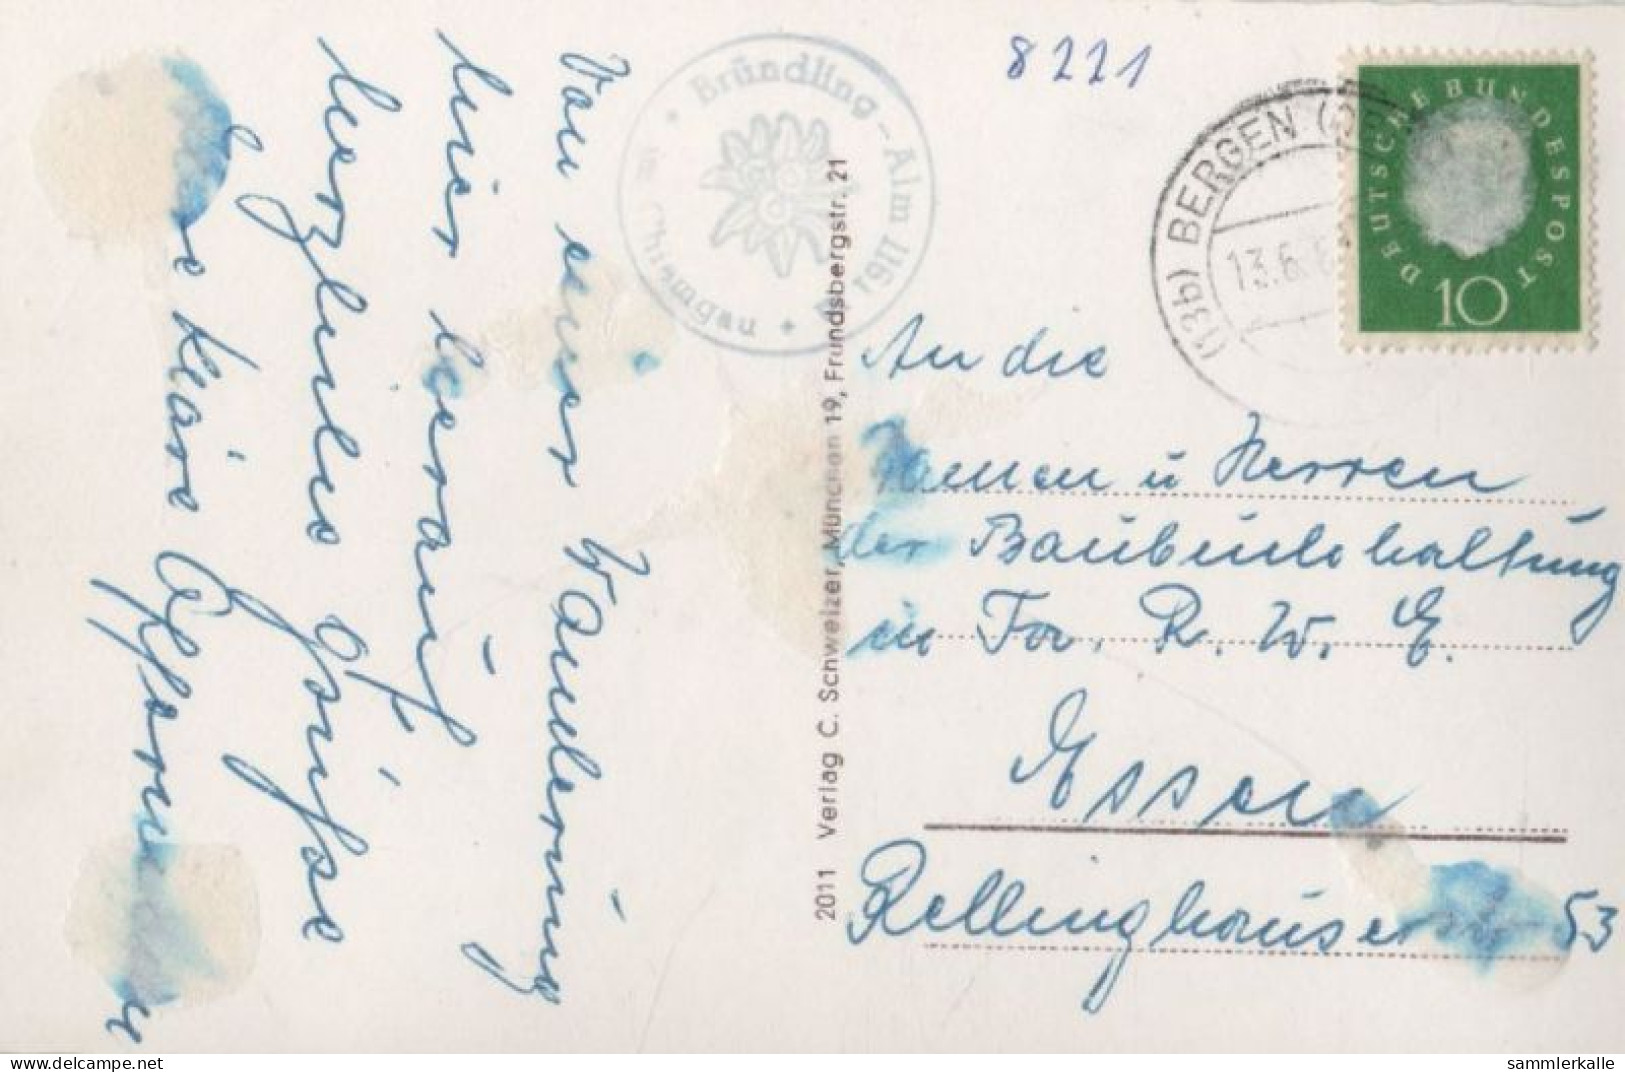 Von einer Wanderung
hier herauf
herzliche Grüsse
Ihre Kläre
8221
Bründling-Alm 1167 m
im Chiemgau
(13b) BERGEN
13.6.
DEUTSCHE BUNDESPOST
10
An die
Damen u Herren
der Baubuchhaltung
in Fa. R. W. E.
Essen
Rellinghauser 53
2011 Verlag C. Schweizer, München 19, Frundsbergstr. 21
delcampe.net
sammlerkalle